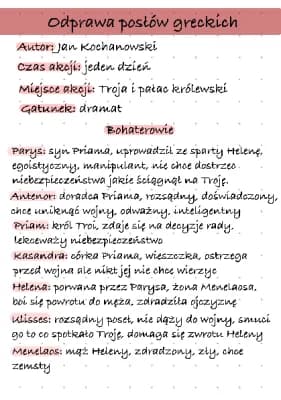 Odprawa posłów greckich
Autor: Jan Kochanowski
Czas akcji: jeden dzień
Miejsce akcji: Troja i pałac królewski
Gatunek: dramat
Bohaterowie
Parys: syn Priama, uprowadził ze sparty Helenę,
egoistyczny, manipulant, nie chce dostrzec
niebezpieczeństwa jakie ściągnął na Troję.
Antenor: doradca Priama, rozsądny, doświadczony,
chce uniknąć wojny, odważny, inteligentny
Priam: król Troi, zdaje się na decyzje rady,
lekceważy niebezpieczeństwo
Kasandra: córka Priama, wieszczka, ostrzega
przed wojną ale nikt jej nie chce wierzyc
Helena: porwana przez Parysa, żona Menelaosa,
boi się powrotu do męża, zdradziła ojczyznę
Ulisses: rozsądny poseł, nie dąży do wojny, smuci
go to co spotkało Troję, domaga się zwrotu Heleny
Menelaos: mąż Heleny, zdradzony, zły, chce
zemsty